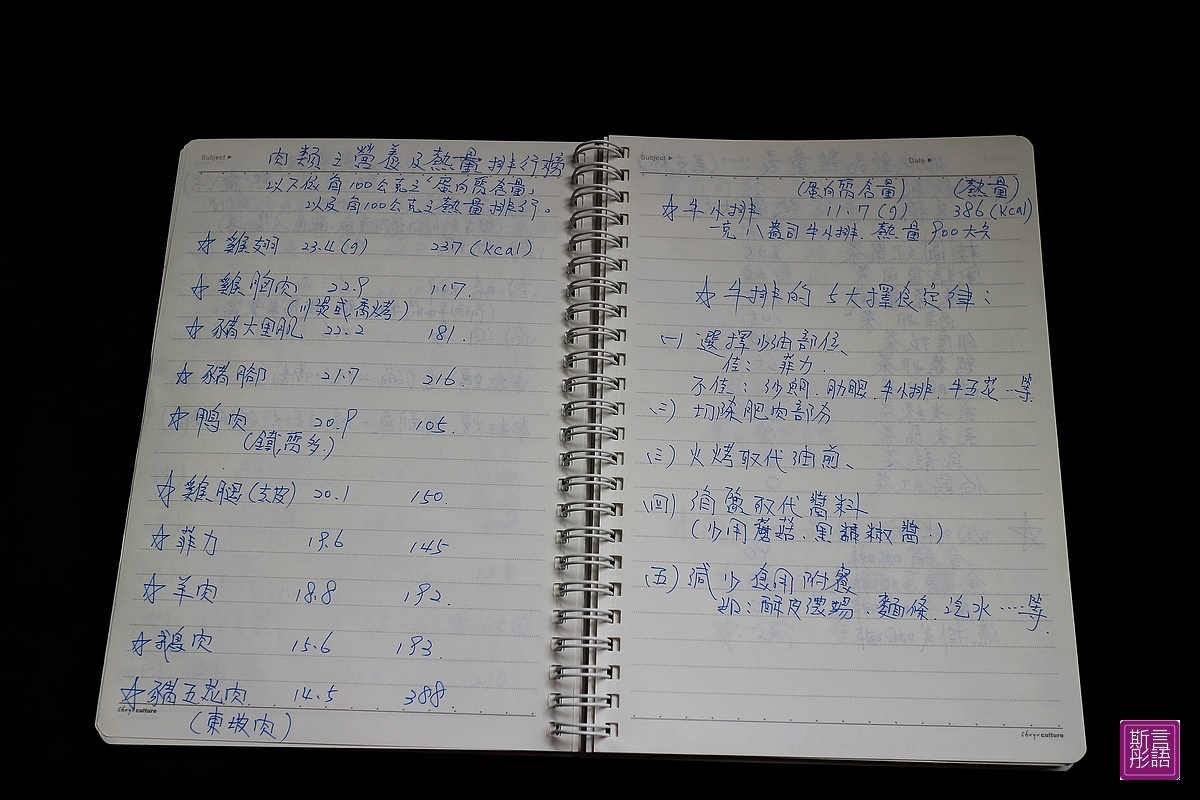 Subject ▶
肉類之營養及熱量排行榜
以下依每100公克之"蛋白質含量"
以及每100公克之熱量排行。
☆雞翅 23.4(g) 237(kcal)
☆雞胸肉 22.9 117.
(川燙或香烤)
☆豬大里肌 22.2 181.
☆豬腳 21.7 216.
☆鴨肉 20.9 105.
(鐵質多)
☆雞腿(去皮) 20.1 150.
☆菲力 19.6 145
☆羊肉 18.8 192.
☆鵝肉 15.6 193.
☆豬五花肉 14.5 388.
Choyo culture
(東坡肉)
Subject ▶ Date ▶
(蛋白質含量) (熱量)
☆牛小排 11.7(g) 386(kcal)
一克八盎司牛小排.熱量900大卡
☆牛排的5大擇食定律:
(一)選擇少油部位、
佳:菲力.
不佳:沙朗.肋眼.牛小排.牛五花…等.
(二)切除肥肉部分
(三)火烤取代油煎、
(四)海鹽取代醬料
(少用蘑菇.黑胡椒醬.)
(五)減少食用附餐
如:酥皮濃湯 麵條.汽水…等.
Choyo culture
斯彤言語